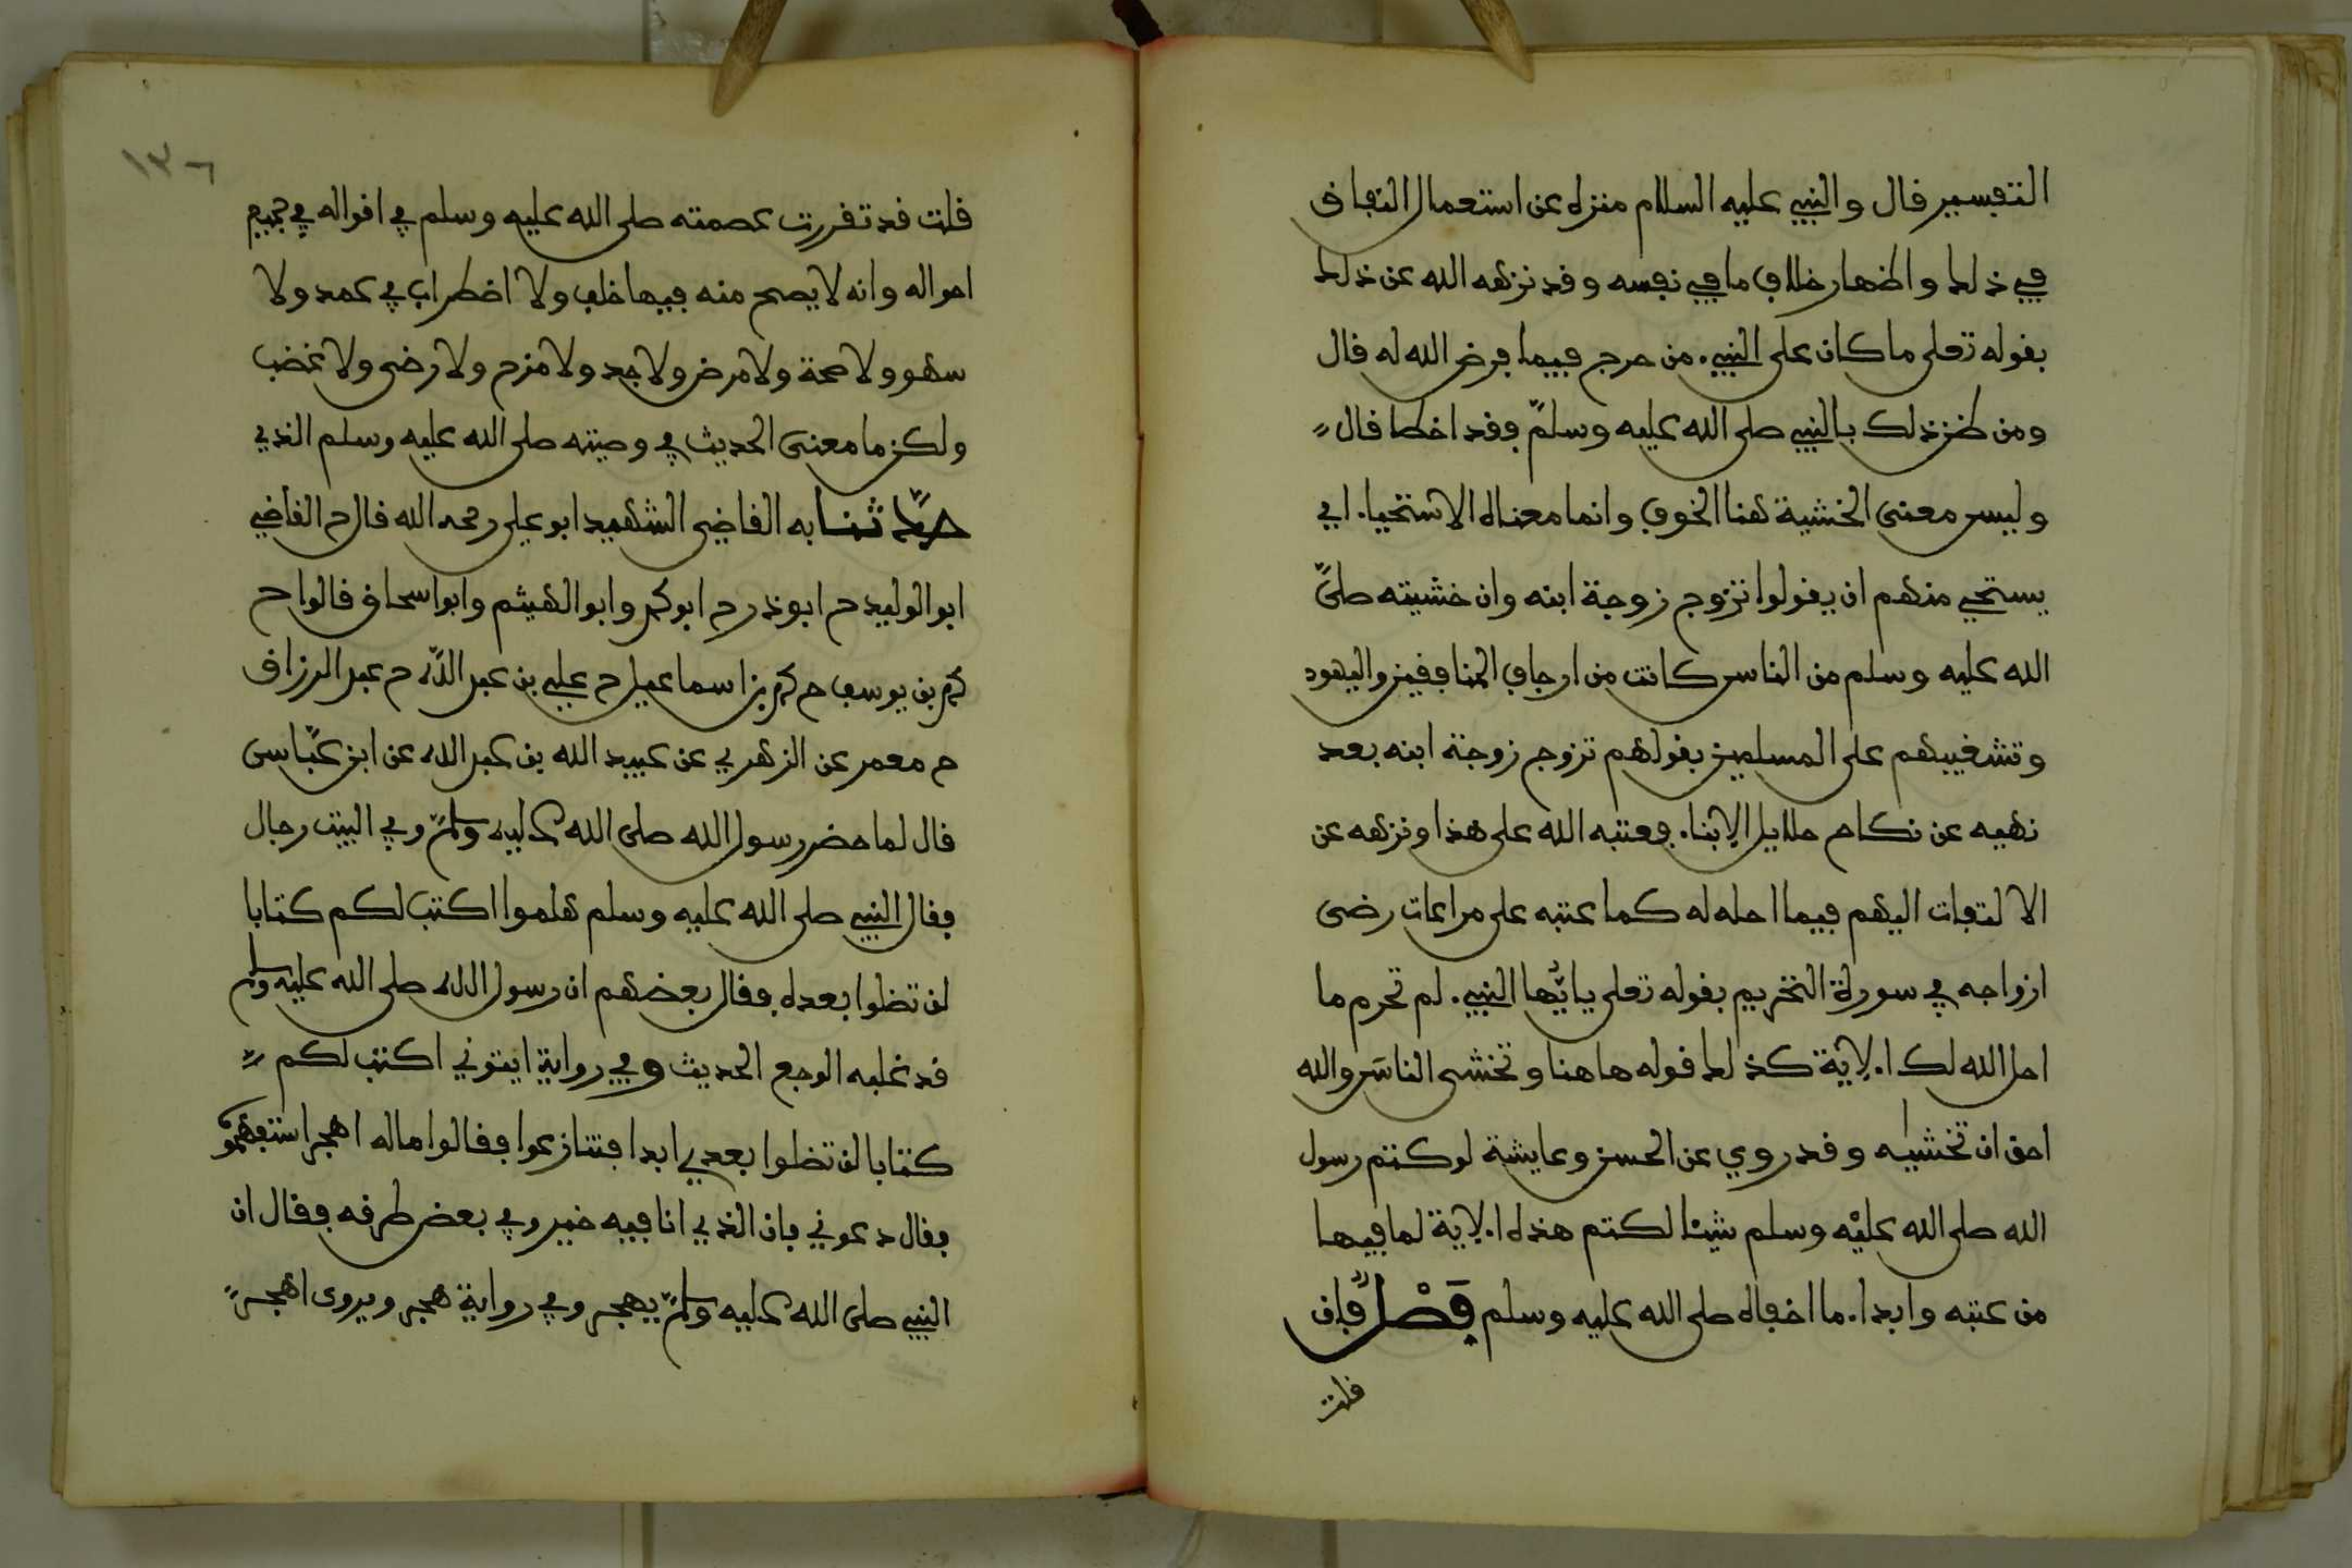 التفسير قال والنبي عليه السلام منزه عن استعمال النفاق
في ذلك واظهار خلاف ما في نفسه وقد نزهه الله عن ذلك
بقوله تعلى ما كان على النبيء من حرج فيما فرض الله له قال
ومن ظن ذلك بالنبي صلى الله عليه وسلم فقد اخطا قال
وليس معنى الخشية هنا الخوف وانما معناه الاستحياء اي
يستحي منهم ان يقولوا تزوج زوجة ابنه وان خشيته صلى
الله عليه وسلم من الناس كانت من ارجاف المنافقين واليهود
وتشغيبهم على المسلمين بقولهم تزوج زوجة ابنه بعد
نهيه عن نكاح حلايل الابناء فعتبه الله على هذا ونزهه عن
الالتفات اليهم فيما احله له كما عتبه على مراعات رضى
ازواجه في سورة التحريم بقوله تعلى يايها النبيء لم تحرم ما
احل الله لك الاية كذلك قوله هاهنا وتخشى الناس والله
احق ان تخشيه وقد روي عن الحسن وعايشة لو كتم رسول
الله صلى الله عليه وسلم شيئا لكتم هذه الاية لما فيها
من عتبه وابداء ما اخفاه صلى الله عليه وسلم فصل فان
قلت
١٣٦
قلت قد تقررت عصمته صلى الله عليه وسلم في اقواله في جميع
احواله وانه لا يصح منه فيها خلف ولا اضطراب في عمد ولا
سهو ولا صحة ولا مرض ولا جد ولا مزح ولا رضى ولا غضب
ولكن ما معنى الحديث في وصيته صلى الله عليه وسلم الذي
حدثنا به القاضي الشهيد ابو علي رحمه الله قال ح القاضي
ابو الوليد ح ابو ذر ح ابو محمد وابو الهيثم وابو اسحاق قالوا ح
محمد بن يوسف ح محمد بن اسماعيل ح علي بن عبد الله ح عبد الرزاق
ح معمر عن الزهري عن عبيد الله بن عبد الله عن ابن عباس
قال لما حضر رسول الله صلى الله عليه وسلم وفي البيت رجال
فقال النبي صلى الله عليه وسلم هلموا اكتب لكم كتابا
لن تضلوا بعده فقال بعضهم ان رسول الله صلى الله عليه وسلم
قد غلبه الوجع الحديث وفي رواية ايتوني اكتب لكم
كتابا لن تضلوا بعدي ابدا فتنازعوا فقالوا ماله اهجر استفهموه
فقال دعوني فان الذي انا فيه خير وفي بعض طرقه فقال ان
النبي صلى الله عليه وسلم يهجر وفي رواية هجر ويروى اهجر